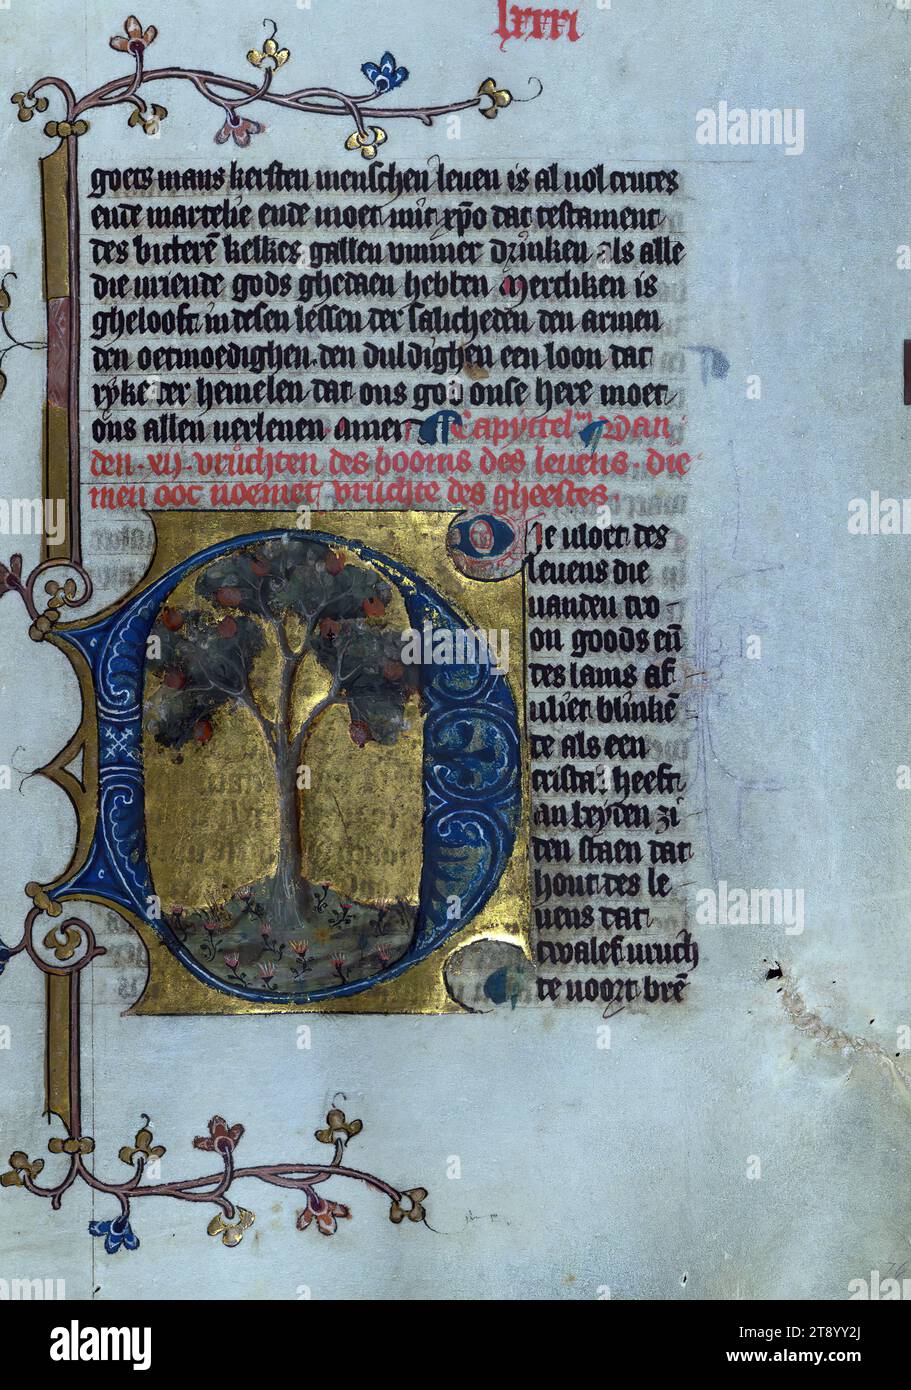 lxxxi
goets mans kersten menschen leuen is al vol cruces
ende martelie ende moet mit xpo dat testament
des bitterē kelkes gallen ummer drinken als alle
die vriende gods ghedaen hebben Merckken is
ghelooft in desen lessen der salicheden den armen
den oetmoedighen den duldighen een loon dat
ryke der hemelen dat ons god onse here moet
ons allen verlenen amen Capyttel Van
den xij vruchten des booms des leuens die
men ooc noemet vruchte des gheestes
Die vloet des
leuens die
vanden tro
on goods eñ
des lams af
vliet blinkē
de als een
cristal heeft
an beyden zi
den staen dat
hout des le
uens dat
twalef vruch
te voort brē
alamy
Image ID: 2T8YY2J
www.alamy.com